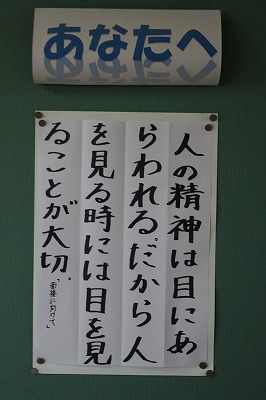 あなたへ
人の精神は目にあ
らわれる。だから人
を見る時には目を見
ることが大切。
「面接に向けて」